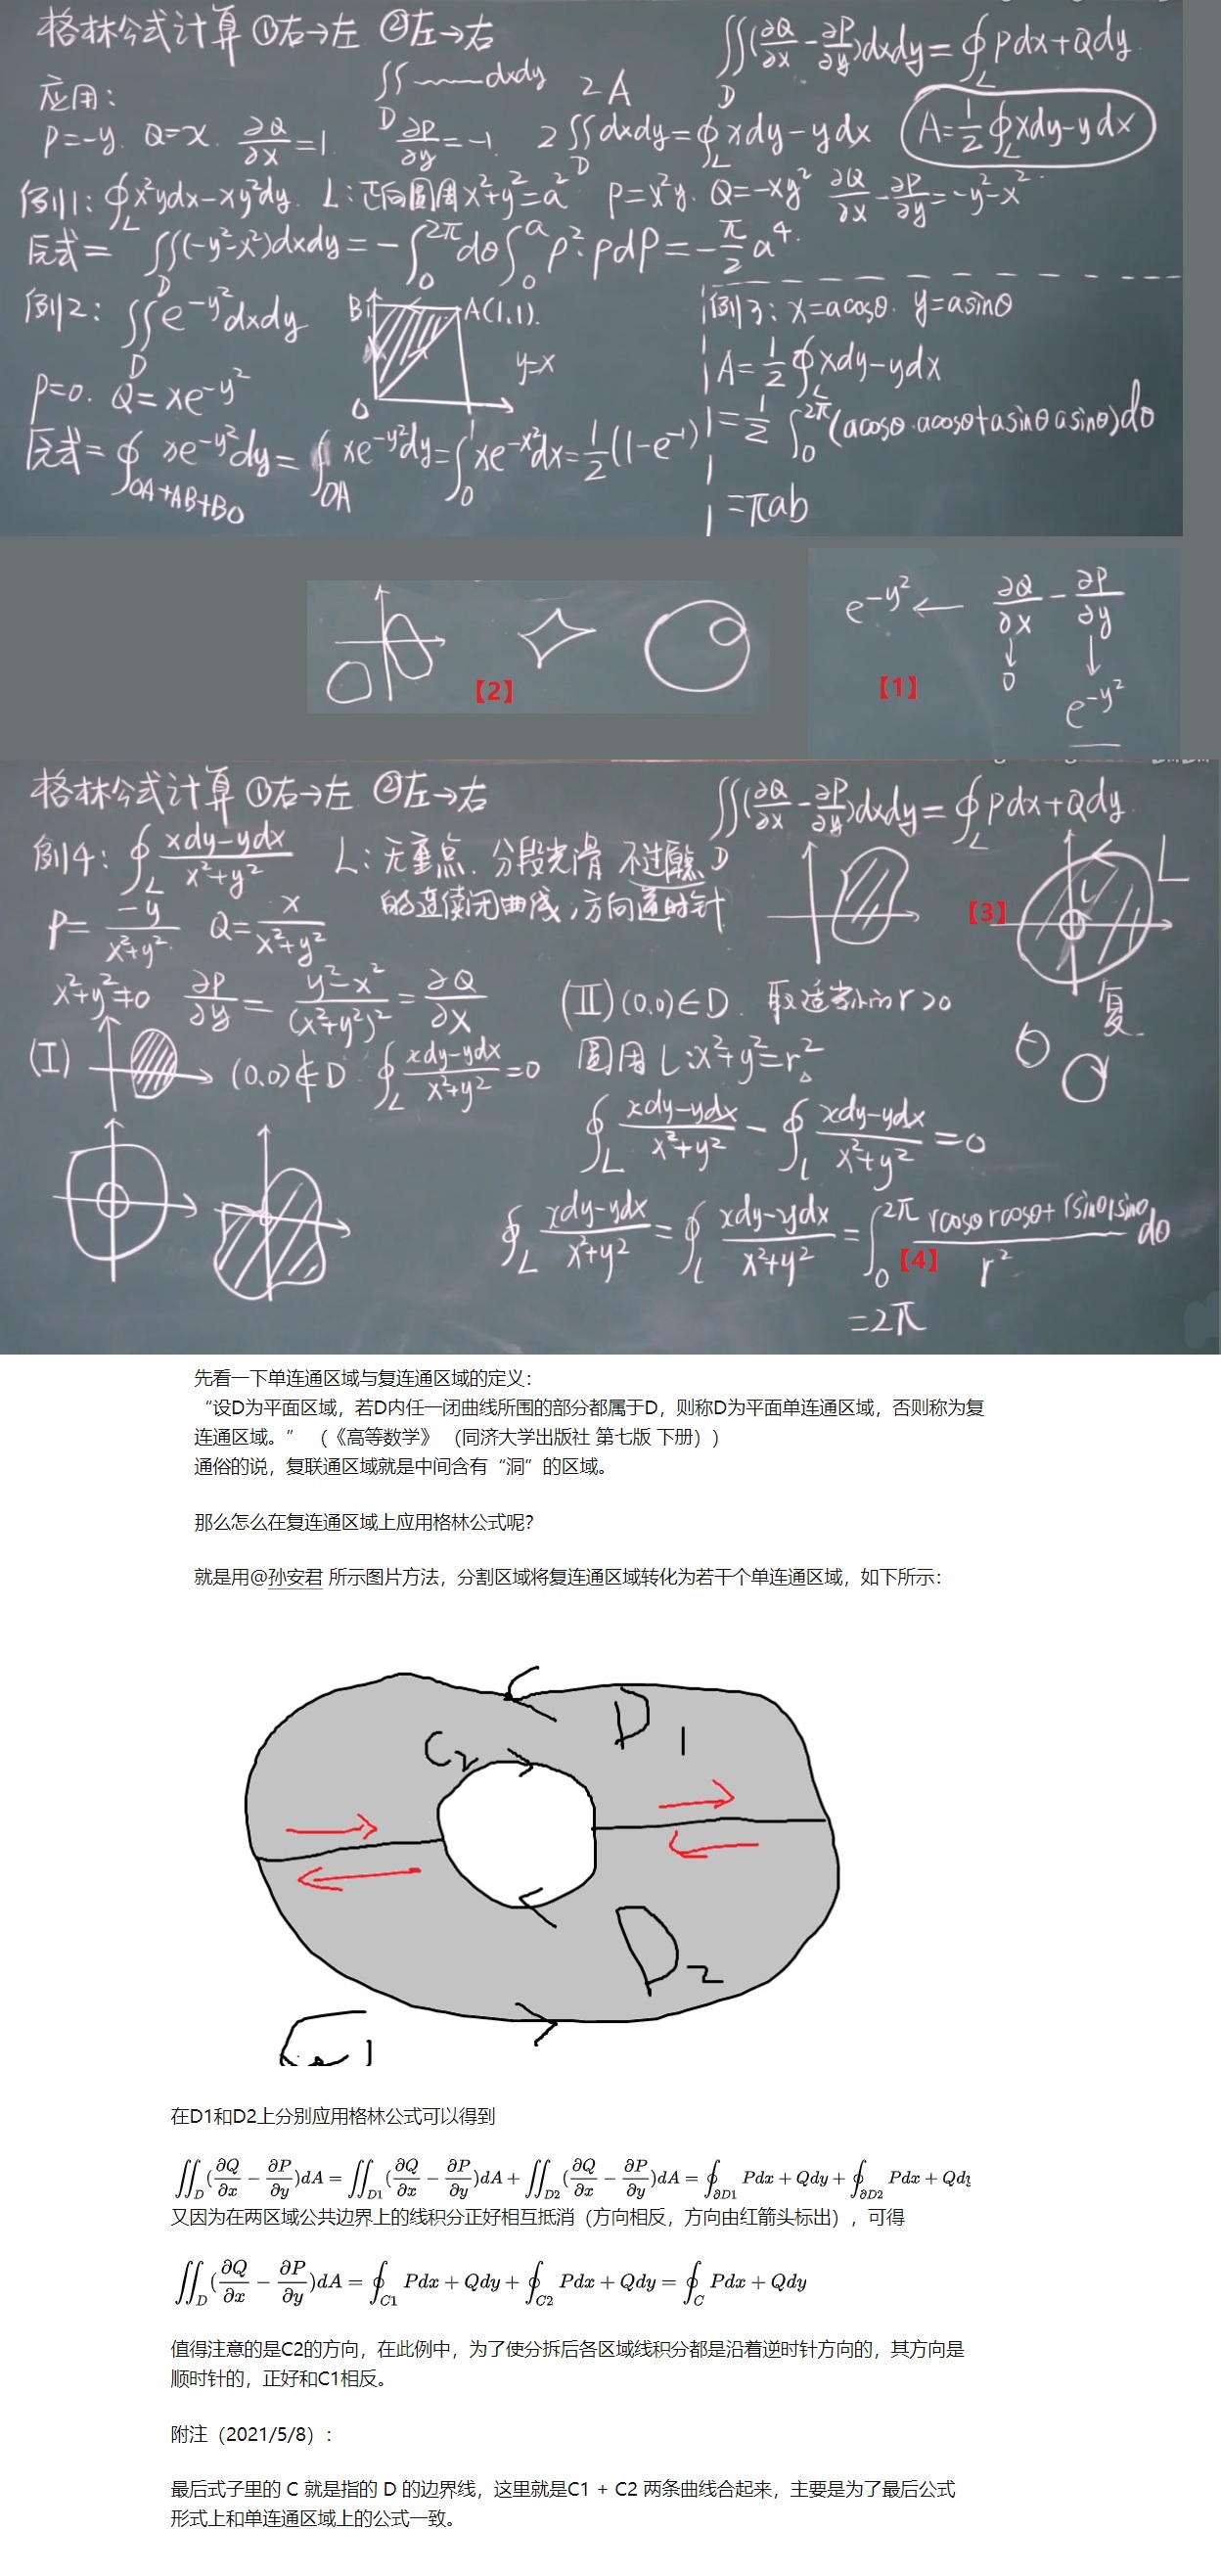 格林公式计算 ①右→左 ②左→右
∬_D(∂Q/∂x - ∂P/∂y)dxdy = ∮_L Pdx+Qdy
∬_D ——dxdy 2A
应用:
P=-y. Q=x. ∂Q/∂x=1. ∂P/∂y=-1. 2∬_D dxdy=∮_L xdy-ydx A=1/2∮_L xdy-ydx
例1: ∮_L x²ydx-xy²dy. L:正向圆周x²+y²=a² P=x²y. Q=-xy² ∂Q/∂x-∂P/∂y=-y²-x².
原式= ∬_D(-y²-x²)dxdy=-∫_0^{2π}dθ∫_0^a ρ²·ρdρ=-π/2 a⁴.
例2: ∬_D e^{-y²}dxdy
B1 A(1,1).
y=x
0
P=0. Q=xe^{-y²}
原式=∮_{OA+AB+BO} xe^{-y²}dy=∫_{OA} xe^{-y²}dy=∫_0^1 xe^{-x²}dx=1/2(1-e^{-1})
例3: x=acosθ. y=asinθ
A=1/2∮_L xdy-ydx
=1/2∫_0^{2π}(acosθ·acosθ+asinθasinθ)dθ
=πab
【2】
e^{-y²} ← ∂Q/∂x - ∂P/∂y
↓ ↓
0 e^{-y²}
【1】
格林公式计算 ①右→左 ②左→右
∬_D(∂Q/∂x - ∂P/∂y)dxdy=∮_L Pdx+Qdy.
例4: ∮_L (xdy-ydx)/(x²+y²) L:无重点.分段光滑 不过原点
的连续闭曲线,方向逆时针
P=-y/(x²+y²). Q=x/(x²+y²)
【3】
L
l
复
x²+y²≠0 ∂P/∂y=(y²-x²)/(x²+y²)²=∂Q/∂x
(Ⅰ) (0,0)∉D ∮_L (xdy-ydx)/(x²+y²)=0
(Ⅱ)(0,0)∈D. 取适当小的r>0
圆周l:x²+y²=r²
∮_L (xdy-ydx)/(x²+y²) - ∮_l (xdy-ydx)/(x²+y²)=0
∮_L (xdy-ydx)/(x²+y²)=∮_l (xdy-ydx)/(x²+y²)=∫_0^{2π} (rcosθrcosθ+rsinθrsinθ)/r² dθ
【4】
=2π
先看一下单连通区域与复连通区域的定义：
“设D为平面区域，若D内任一闭曲线所围的部分都属于D，则称D为平面单连通区域，否则称为复
连通区域。” （《高等数学》 （同济大学出版社 第七版 下册））
通俗的说，复联通区域就是中间含有“洞”的区域。
那么怎么在复连通区域上应用格林公式呢？
就是用@孙安君 所示图片方法，分割区域将复连通区域转化为若干个单连通区域，如下所示：
D1
C2
D2
在D1和D2上分别应用格林公式可以得到
∬_D(∂Q/∂x - ∂P/∂y)dA = ∬_{D1}(∂Q/∂x - ∂P/∂y)dA + ∬_{D2}(∂Q/∂x - ∂P/∂y)dA = ∮_{∂D1} Pdx + Qdy + ∮_{∂D2} Pdx + Qdy
又因为在两区域公共边界上的线积分正好相互抵消（方向相反，方向由红箭头标出），可得
∬_D(∂Q/∂x - ∂P/∂y)dA = ∮_{C1} Pdx + Qdy + ∮_{C2} Pdx + Qdy = ∮_C Pdx + Qdy
值得注意的是C2的方向，在此例中，为了使分拆后各区域线积分都是沿着逆时针方向的，其方向是
顺时针的，正好和C1相反。
附注（2021/5/8）：
最后式子里的 C 就是指的 D 的边界线，这里就是C1 + C2 两条曲线合起来，主要是为了最后公式
形式上和单连通区域上的公式一致。